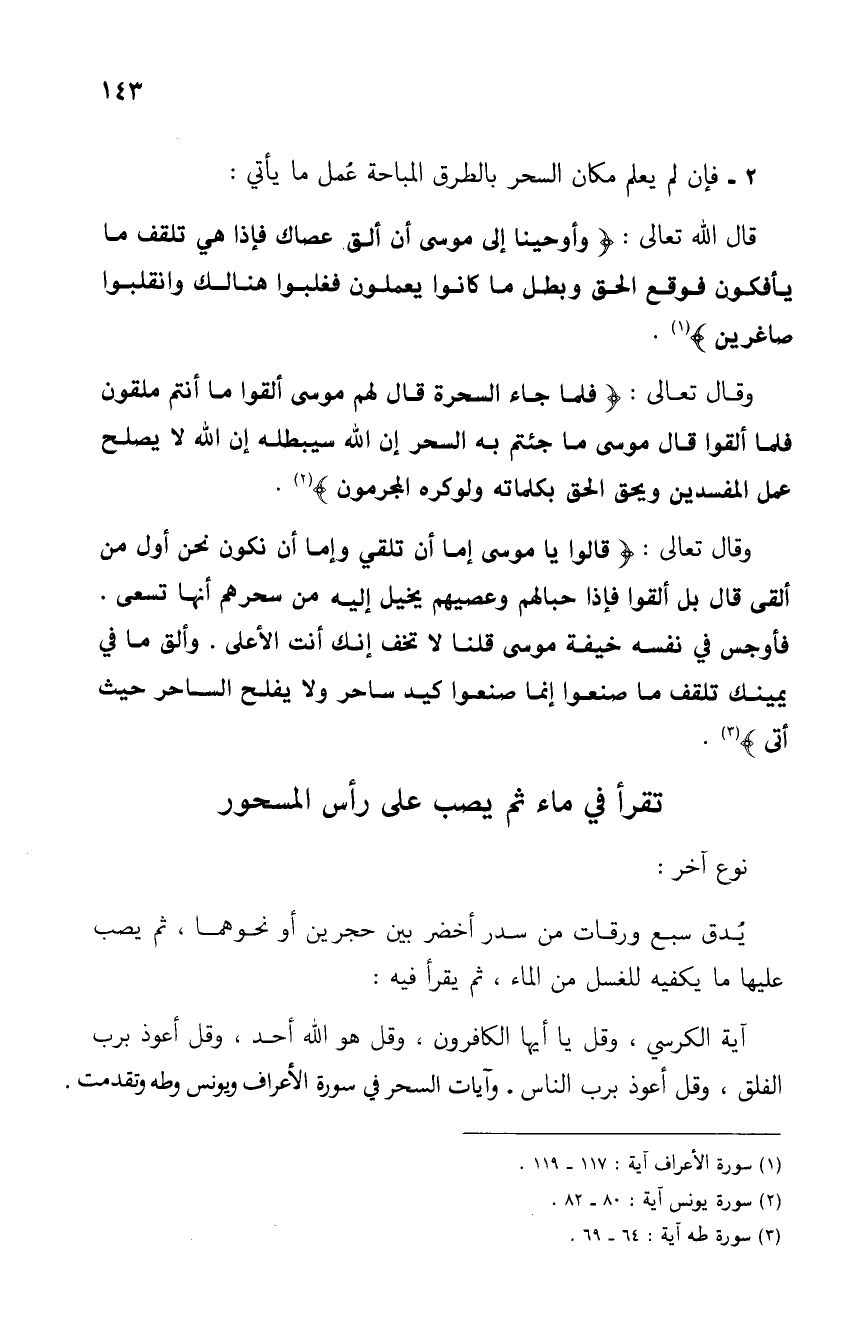 ١٤٣
٢ ـ فإن لم يعلم مكان السحر بالطرق المباحة عُمل ما يأتي :
قال الله تعالى : ﴿ وأوحينا إلى موسى أن ألق عصاك فإذا هي تلقف ما
يأفكون فوقع الحق وبطل ما كانوا يعملون فغلبوا هنالك وانقلبوا
صاغرين ﴾(١) .
وقال تعالى : ﴿ فلما جاء السحرة قال لهم موسى ألقوا ما أنتم ملقون
فلما ألقوا قال موسى ما جئتم به السحر إن الله سيبطله إن الله لا يصلح
عمل المفسدين ويحق الحق بكلماته ولوكره المجرمون ﴾(٢) .
وقال تعالى : ﴿ قالوا يا موسى إما أن تلقي وإما أن نكون نحن أول من
ألقى قال بل ألقوا فإذا حبالهم وعصيهم يخيل إليه من سحرهم أنها تسعى .
فأوجس في نفسه خيفة موسى قلنا لا تخف إنك أنت الأعلى . وألق ما في
يمينك تلقف ما صنعوا إنما صنعوا كيد ساحر ولا يفلح الساحر حيث
أتى ﴾(٣) .
تقرأ في ماء ثم يصب على رأس المسحور
نوع آخر :
يُدق سبع ورقات من سدر أخضر بين حجرين أو نحوهما ، ثم يصب
عليها ما يكفيه للغسل من الماء ، ثم يقرأ فيه :
آية الكرسي ، وقل يا أيها الكافرون ، وقل هو الله أحد ، وقل أعوذ برب
الفلق ، وقل أعوذ برب الناس . وآيات السحر في سورة الأعراف ويونس وطه وتقدمت .
(١) سورة الأعراف آية : ١١٧ ـ ١١٩ .
(٢) سورة يونس آية : ٨٠ ـ ٨٢ .
(٣) سورة طه آية : ٦٤ ـ ٦٩ .